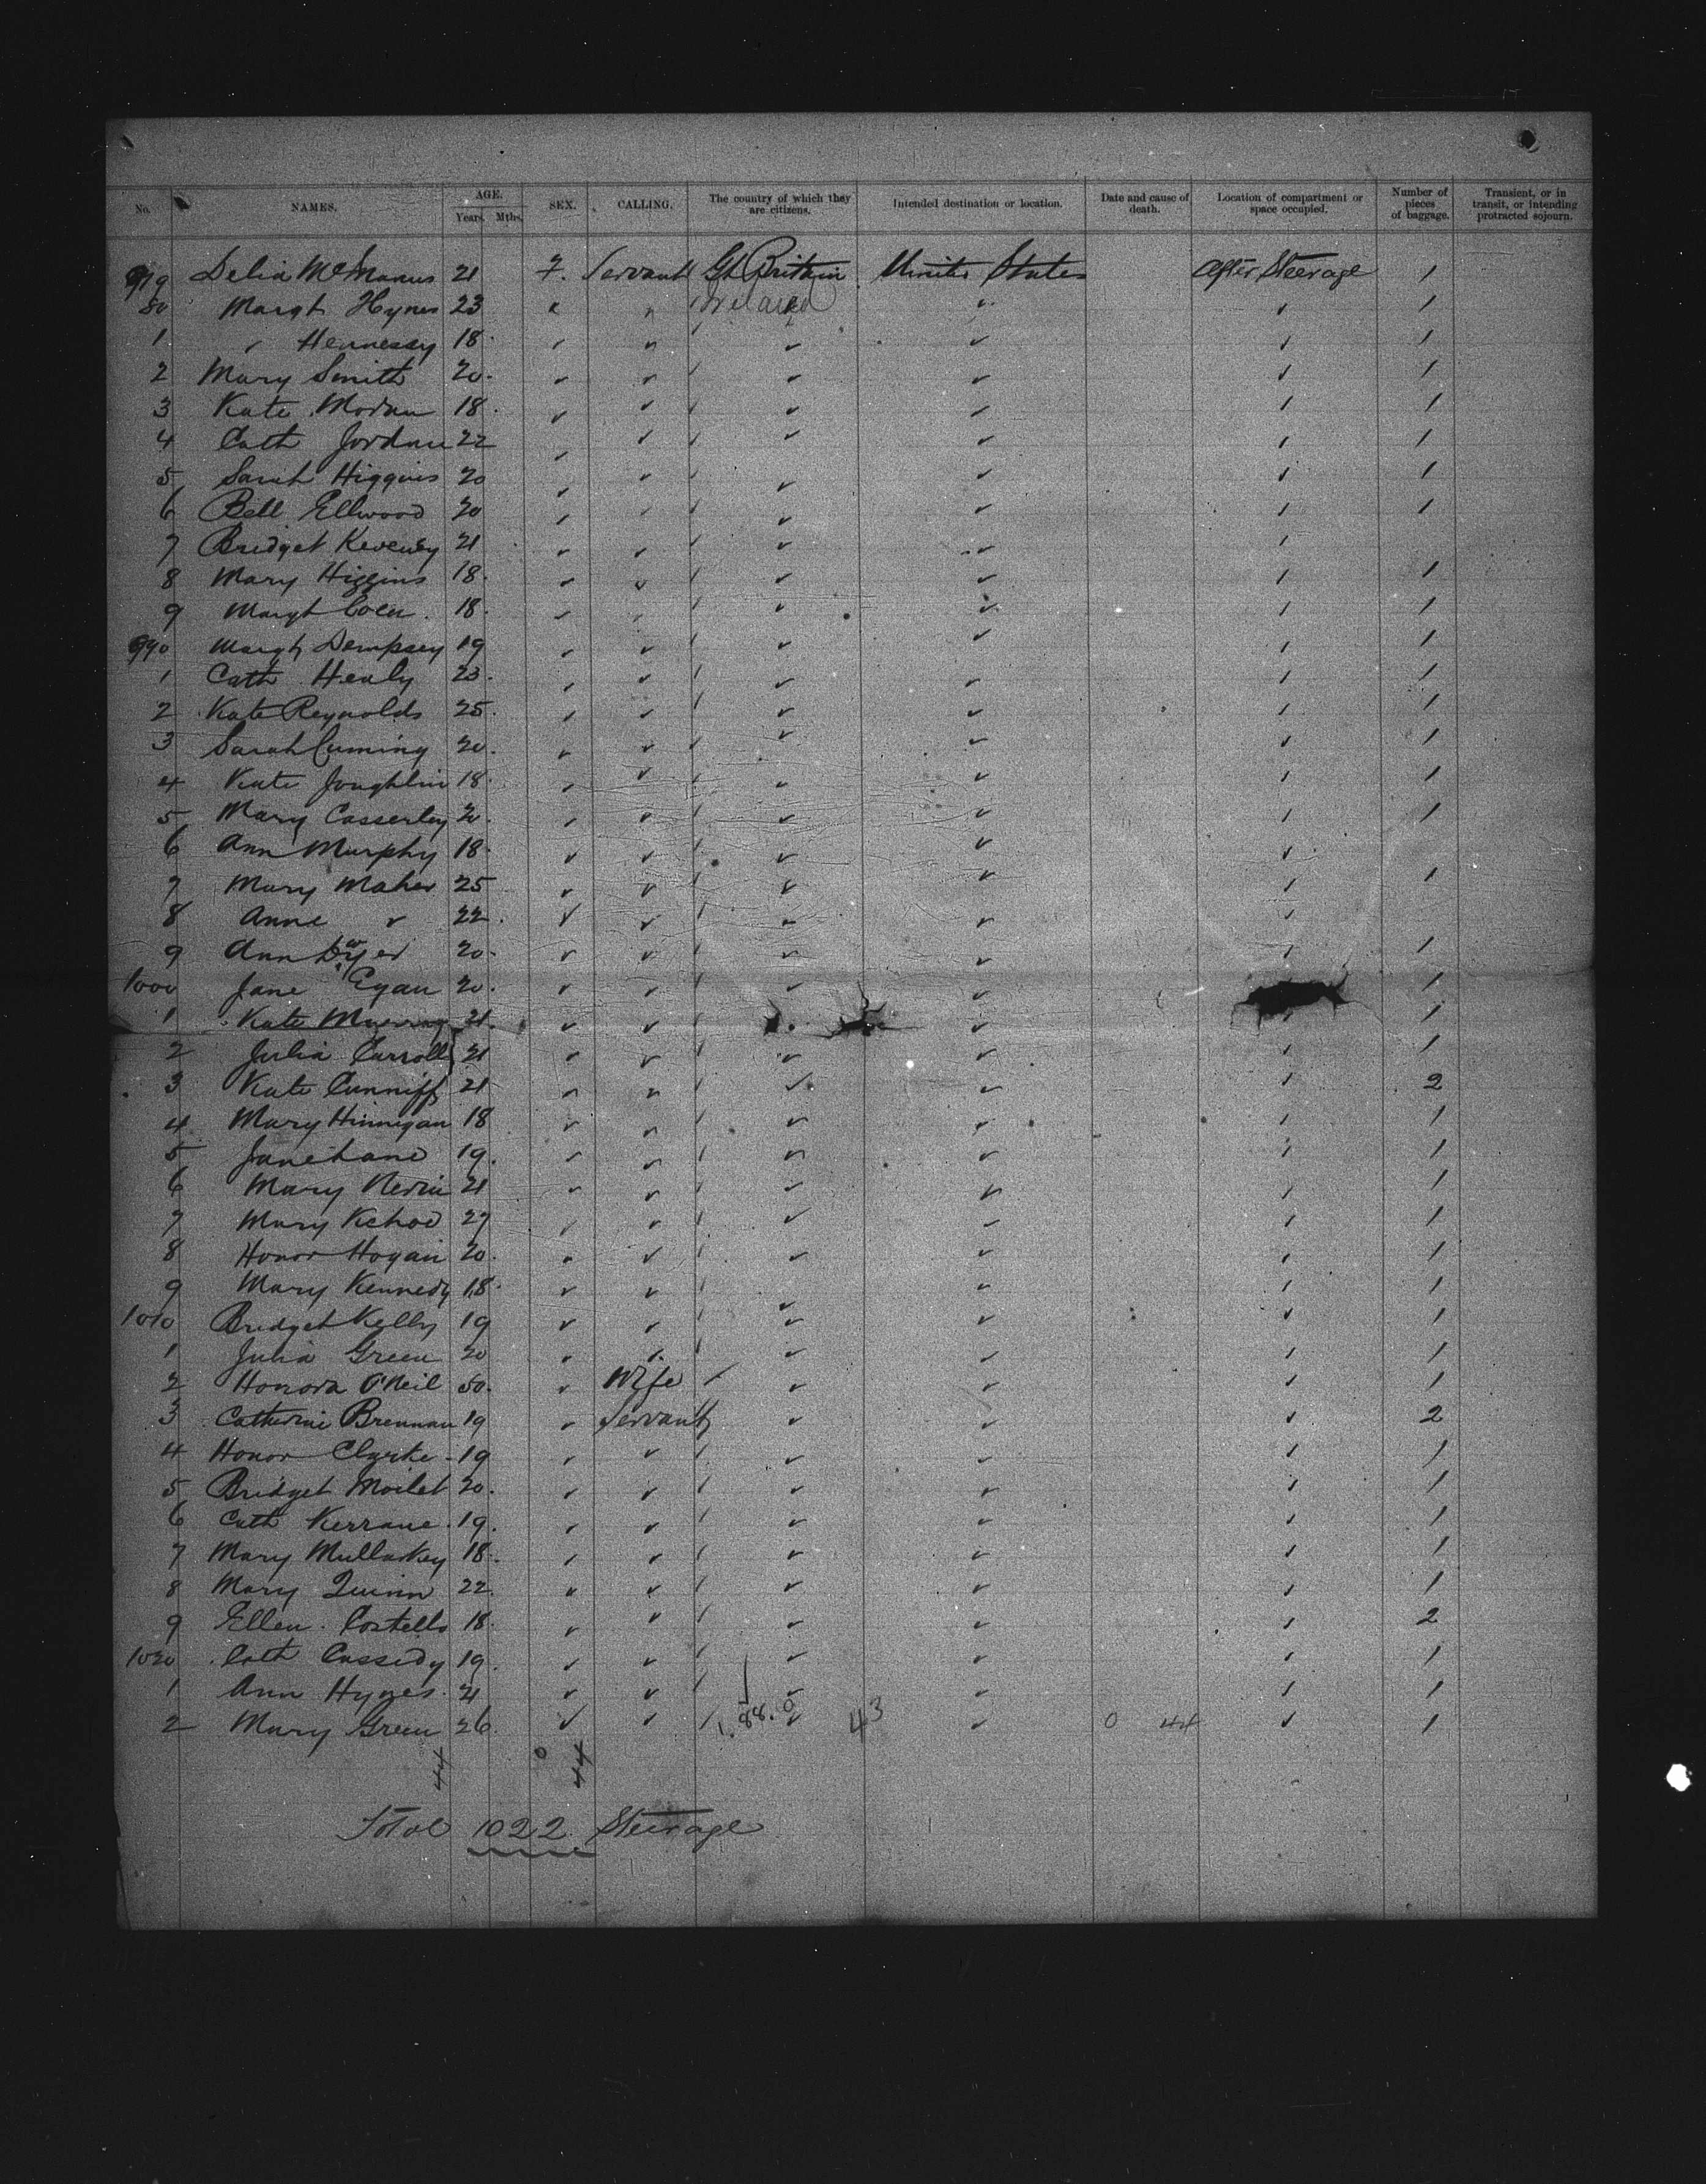 No. NAMES. AGE. Years. Mths. SEX. CALLING. The country of which they are citizens. Intended destination or location. Date and cause of death. Location of compartment or space occupied. Number of pieces of baggage. Transient, or in transit, or intending protracted sojourn.
979 Delia McManus 21 F. Servant Gt Britain United States After Steerage 1
80 Margt Hynes 23 " " Ireland " " 1
1 " Hennessy 18 " " " " " 1
2 Mary Smith 20 " " " " " 1
3 Kate Moran 18 " " " " " 1
4 Cath Jordan 22 " " " " " 1
5 Sarah Higgins 20 " " " " " 1
6 Bell Ellwood 20 " " " " " 1
7 Bridget Keveney 21 " " " " "
8 Mary Higgins 18 " " " " " 1
9 Margt Coen 18 " " " " " 1
990 Margt Dempsey 19 " " " " " 1
1 Cath Healy 23 " " " " " 1
2 Kate Reynolds 25 " " " " " 1
3 Sarah Cuming 20 " " " " " 1
4 Kate Joughlin 18 " " " " " 1
5 Mary Casserley 20 " " " " " 1
6 Ann Murphy 18 " " " " "
7 Mary Maher 25 " " " " " 1
8 Anne " 22 " " " " "
9 Ann Dwyer 20 " " " " " 1
1000 Jane Egan 20 " " " " 1
1 Kate Murray 21 " " " " 1
2 Julia Carroll 21 " " " " " 1
3 Kate Cunniff 21 " " " " " 2
4 Mary Hinnigan 18 " " " " " 1
5 Jane Lane 19 " " " " " 1
6 Mary Nevin 21 " " " " " 1
7 Mary Kehoe 27 " " " " " 1
8 Honor Hogan 20 " " " " " 1
9 Mary Kennedy 18 " " " " " 1
1010 Bridget Kelly 19 " " " " " 1
1 Julia Green 20 " " " " " 1
2 Honora O'Neil 50 " Wife " " " 1
3 Catherine Brennan 19 " Servant " " " 2
4 Honor Clarke 19 " " " " " 1
5 Bridget Moilet 20 " " " " " 1
6 Cath Kerrane 19 " " " " " 1
7 Mary Mullarkey 18 " " " " " 1
8 Mary Quinn 22 " " " " " 1
9 Ellen Costello 18 " " " " " 2
1020 Cath Cassidy 19 " " " " " 1
1 Ann Hynes 21 " " " " " 1
2 Mary Green 26 " " 1.88.0 " 43 " 0 44 " 1
44 0 44
Total 1022 Steerage